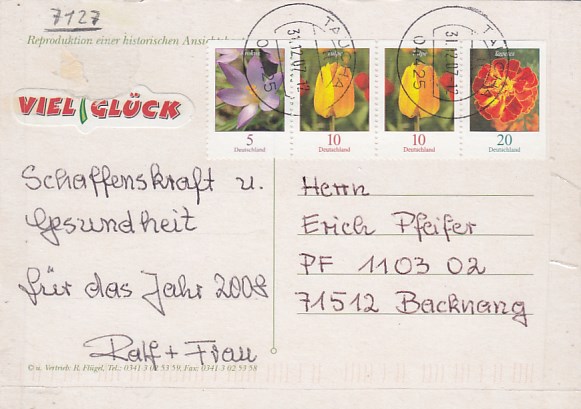 7127
Reproduktion einer historischen
VIEL GLÜCK
Krokus
Tulpe
Tulpe
Tagetes
5
Deutschland
10
Deutschland
10
Deutschland
20
Deutschland
TAUCHA
31.12.07
04425
TAUCHA
31.12.07
04425
Schaffenskraft u.
Gesundheit
für das Jahr 2008
Ralf + Frau
Herrn
Erich Pfeifer
PF 1103 02
71512 Backnang
© u. Vertrieb: R. Flügel, Tel.: 0341-3 02 53 59, Fax: 0341-3 02 53 58